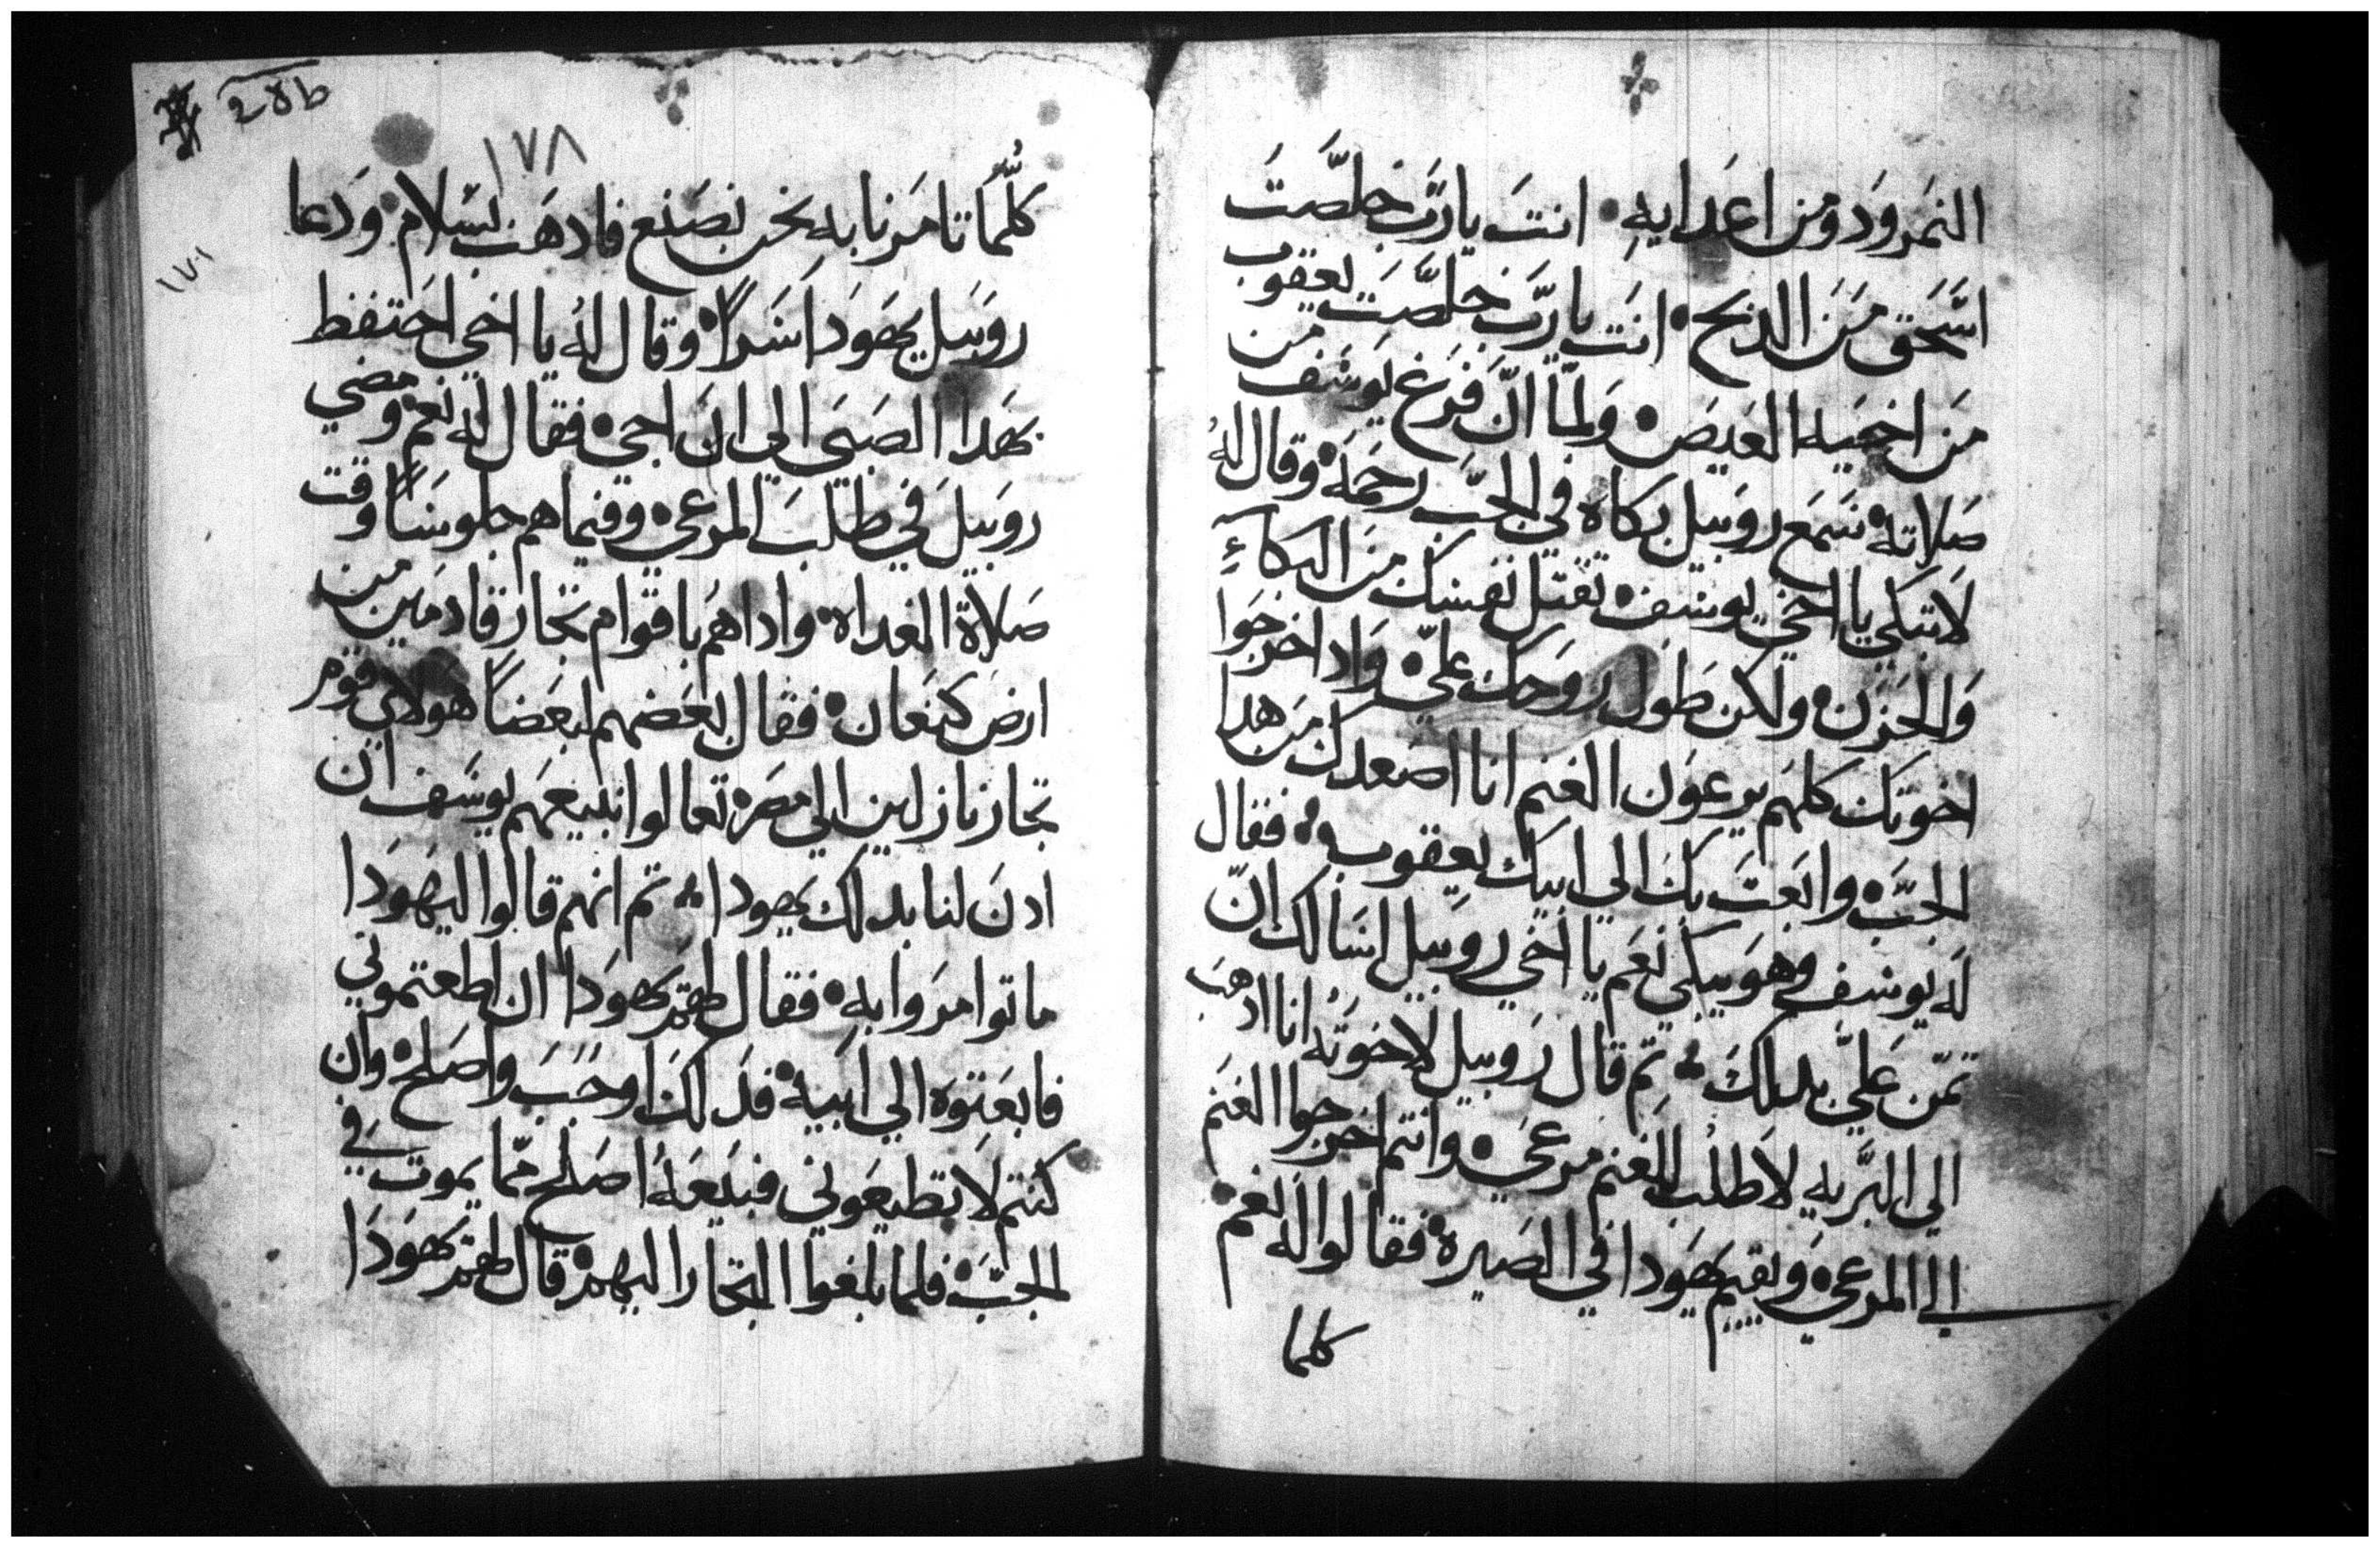 النمرود ومن اعدايه انت يارب خلصت
اسحق من الدبح انت يارب خلصت يعقوب
من اخيه العيص ولما ان فرغ يوسف من
صلاته سمع روبيل بكاه في الجب رحمه وقال له
لا تبكي يا اخي يوسف تقتل نفسك من البكاءِ
والحزن ولكن طول روحك علي واذا خرجوا
اخوتك كلهم يرعون الغنم انا اصعدك من هدا
الجب وابعت بك الى ابيك يعقوب فقال
له يوسف وهو يبكي نعم يا اخي روبيل اسالك ان
تمن علي بدلك تم قال روبيل لاخوته انا ادهب
الي البريه لاطلب للغنم مرعي وانتم اخرجوا الغنم
الى المرعي ويقيم يهودا في الصيره فقالوا له نعم
كلما
١٧٨
كلما تامرنا به نحن نصنع فادهب بسلام ودعا
روبيل يهودا سرا وقال له يا اخي احتفظ
بهدا الصبي الى ان اجي فقال له نعم ومضي
روبيل في طلب المرعي وفيما هم جلوسا وقت
صلاة الغداه وادا هم باقوام تجار قادمين من
ارض كنعان فقال بعضهم لبعضا هولاي قوم
تجار نازلين الي مصر تعالوا نبيعهم يوسف ان
ادن لنا بدلك يهودا تم انهم قالوا ليهودا
ما توامروا به فقال لهم يهودا ان اطعتموني
فابعتوه الي ابيه فدلك اوجب واصلح وان
كنتم لا تطيعوني فبيعه اصلح مما يموت في
الجب فلما بلغوا التجار اليهم قال لهم يهودا